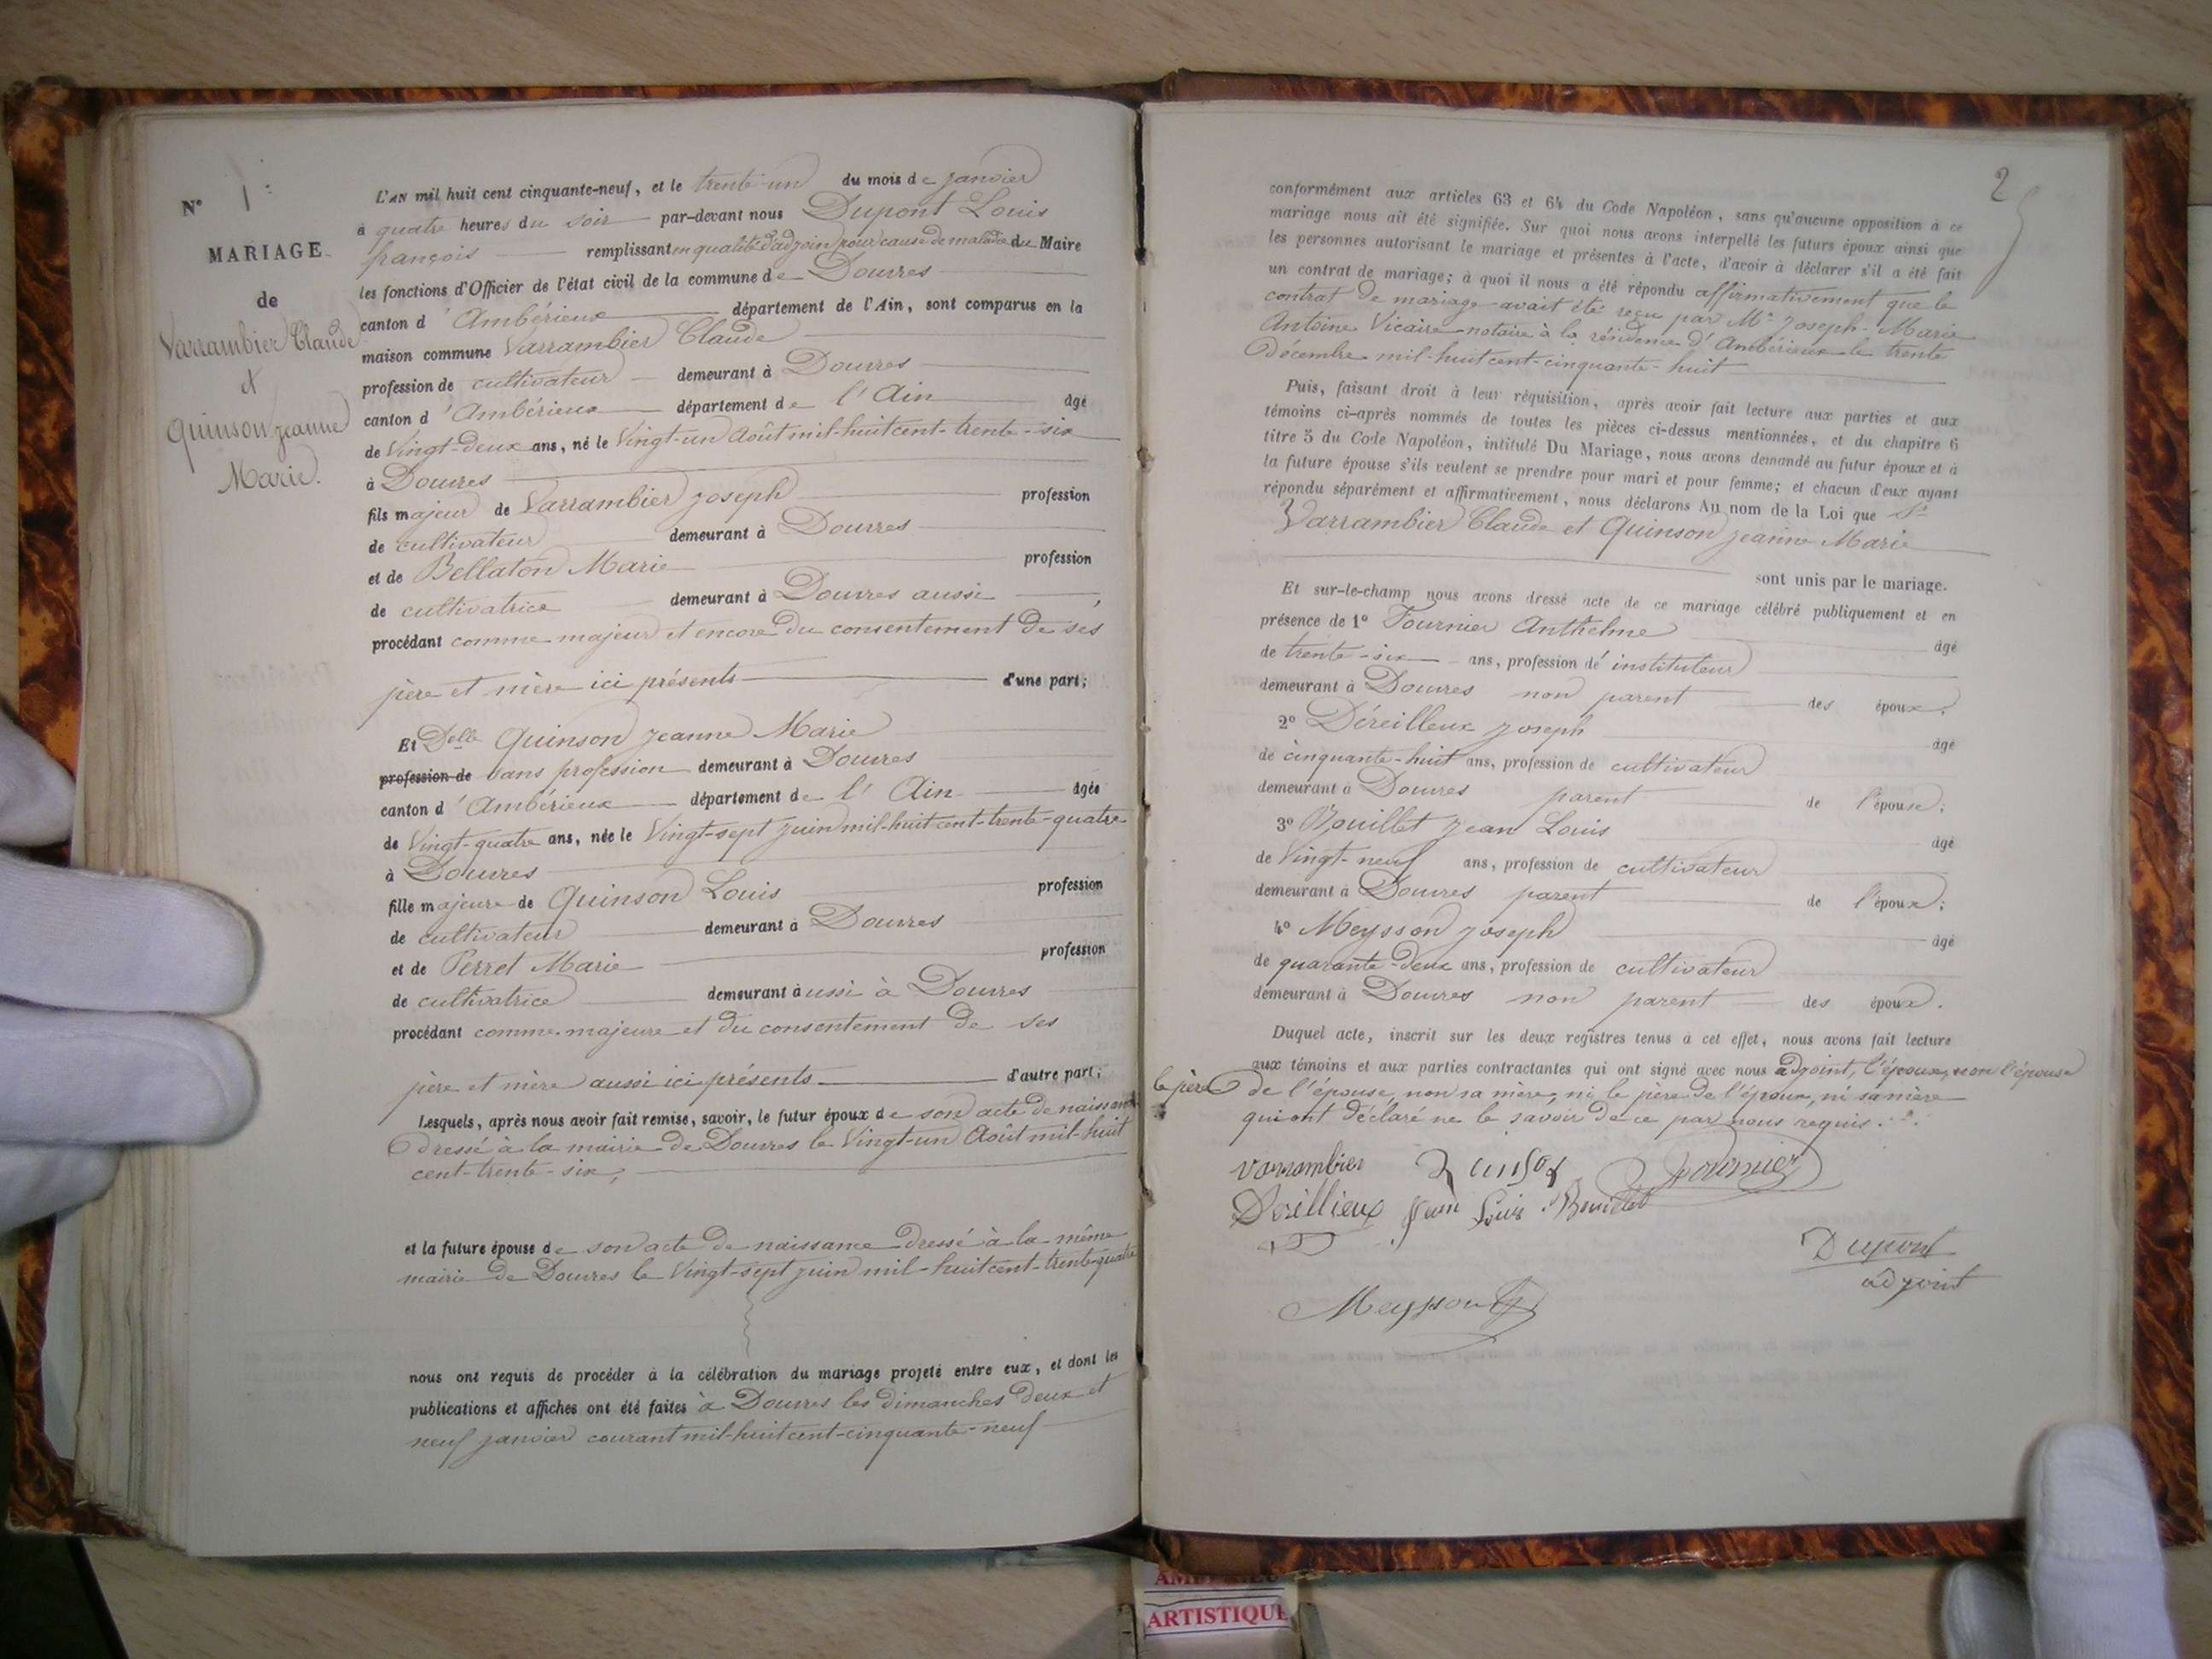 N° 1
MARIAGE
de
Varrambier Claude
et
Quinson Jeanne
Marie.
L'AN mil huit cent cinquante-neuf, et le trente-un du mois de janvier
à quatre heures du soir par-devant nous Dupont Louis
françois remplissant en qualité d'adjoint pour cause de maladie du Maire
les fonctions d'Officier de l'état civil de la commune de Douvres
canton d'Ambérieux département de l'Ain, sont comparus en la
maison commune Varrambier Claude
profession de cultivateur demeurant à Douvres
canton d'Ambérieux département de l'Ain âgé
de Vingt-deux ans, né le Vingt-un Août mil-huit cent-trente-six
à Douvres
fils majeur de Varrambier Joseph profession
de cultivateur demeurant à Douvres
et de Bellaton Marie profession
de cultivatrice demeurant à Douvres aussi,
procédant comme majeur et encore du consentement de ses
père et mère ici présents d'une part;
Et Delle Quinson Jeanne Marie
profession de sans profession demeurant à Douvres
canton d'Ambérieux département de l'Ain âgée
de Vingt-quatre ans, née le Vingt-sept juin mil-huit cent-trente-quatre
à Douvres
fille majeure de Quinson Louis profession
de cultivateur demeurant à Douvres
et de Perret Marie profession
de cultivatrice demeurant aussi à Douvres
procédant comme majeure et du consentement de ses
père et mère aussi ici présents d'autre part;
Lesquels, après nous avoir fait remise, savoir, le futur époux de son acte de naissance
dressé à la mairie de Douvres le Vingt-un Août mil-huit
cent-trente-six;
et la future épouse de son acte de naissance dressé à la même
mairie de Douvres le Vingt-sept juin mil-huit cent-trente-quatre
nous ont requis de procéder à la célébration du mariage projeté entre eux, et dont les
publications et affiches ont été faites à Douvres les dimanches deux et
neuf janvier courant mil-huit cent-cinquante-neuf
2
conformément aux articles 63 et 64 du Code Napoléon, sans qu'aucune opposition à ce
mariage nous ait été signifiée. Sur quoi nous avons interpellé les futurs époux ainsi que
les personnes autorisant le mariage et présentes à l'acte, d'avoir à déclarer s'il a été fait
un contrat de mariage; à quoi il nous a été répondu affirmativement que le
contrat de mariage avait été reçu par Me Joseph-Marie
Antoine Vicaire notaire à la résidence d'Ambérieux le trente
Décembre mil-huit cent-cinquante-huit
Puis, faisant droit à leur réquisition, après avoir fait lecture aux parties et aux
témoins ci-après nommés de toutes les pièces ci-dessus mentionnées, et du chapitre 6
titre 5 du Code Napoléon, intitulé Du Mariage, nous avons demandé au futur époux et à
la future épouse s'ils veulent se prendre pour mari et pour femme; et chacun d'eux ayant
répondu séparément et affirmativement, nous déclarons Au nom de la Loi que
Varrambier Claude et Quinson Jeanne Marie
sont unis par le mariage.
Et sur-le-champ nous avons dressé acte de ce mariage célébré publiquement et en
présence de 1° Fournier Anthelme âgé
de trente-six ans, profession d'instituteur
demeurant à Douvres non parent des époux;
2° Déreilleux Joseph âgé
de cinquante-huit ans, profession de cultivateur
demeurant à Douvres parent de l'épouse;
3° Bouillet Jean Louis âgé
de Vingt-neuf ans, profession de cultivateur
demeurant à Douvres parent de l'époux;
4° Meysson Joseph âgé
de quarante-deux ans, profession de cultivateur
demeurant à Douvres non parent des époux.
Duquel acte, inscrit sur les deux registres tenus à cet effet, nous avons fait lecture
aux témoins et aux parties contractantes qui ont signé avec nous adjoint, l'époux, non l'épouse
le père de l'épouse, non sa mère, ni le père de l'époux, ni sa mère
qui ont déclaré ne le savoir de ce par nous requis.
Varrambier Fournier
Dereillieux Jean Louis Bouillet
Dupont
adjoint
Meysson
ARTISTIQUE